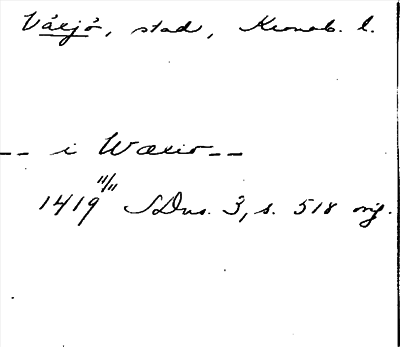 Växjö, stad, Kronob. l.
-- i Wæxio --
1419 11/11 SDns. 3, s. 518 orig.